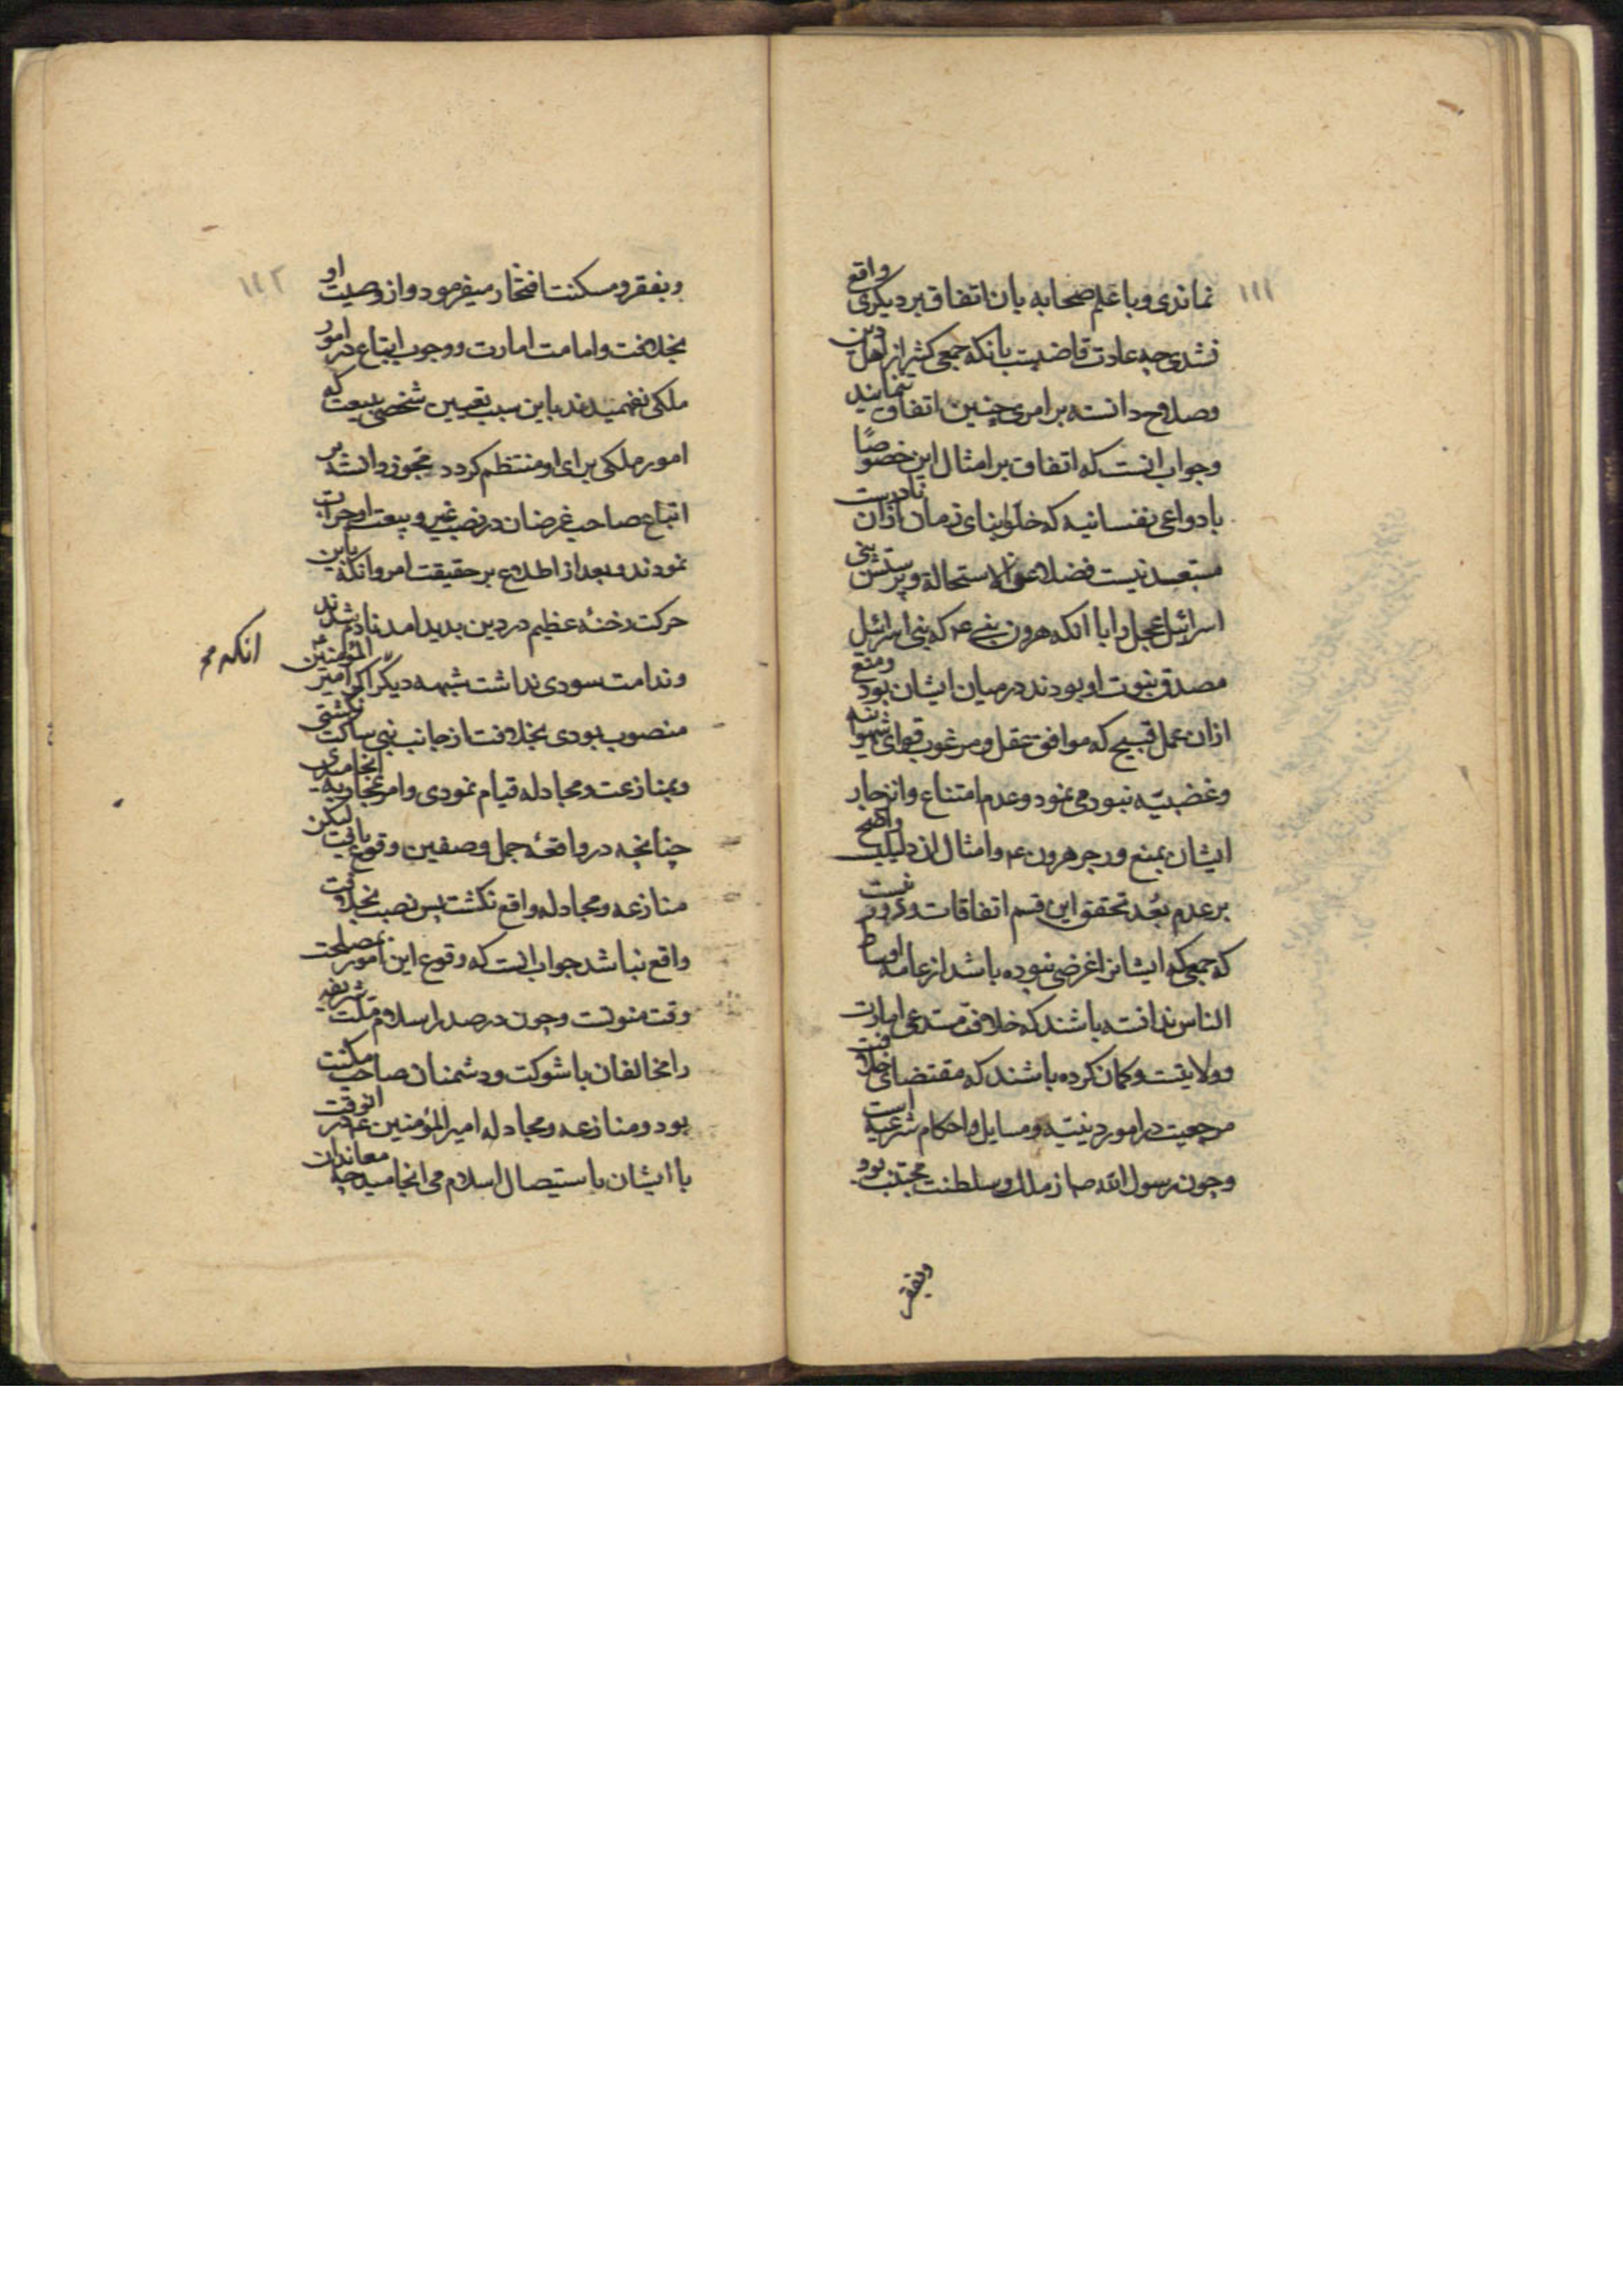 ۱۱۱
نماندی و با علم صحابه بان اتفاق بر دیکری واقع
نشدی چه عادت قاضیست بانکه جمعی کثیر از اهل دین
وصلاح دانسته بر امری چنین اتفاق ننمایند
وجواب انست که اتفاق بر امثال این خصوصًا
با دواعی نفسانیه که خلو ابنای زمان ازان نادرست
مستبعد نیست فضلا عن الاستحالة و پرستش بنی
اسرائیل عجل را با آنکه هرون نبی ع م که بنی اسرائیل
مصدق نبوت او بودند در میان ایشان بود ومنع
ازان عمل قبیح که موافق عقل و مرغوب قوای شهوانیه
وغضبیّه نبود می نمود وعدم امتناع وانزجار
ایشان بمنع وزجر هرون ع م وامثال ان دلیلیست واضح
بر عدم بُعد تحقق این قسم اتفاقات ودور نیست
که جمعی که ایشانرا غرضی نبوده باشد از عامه اوساط
الناس ندانسته باشند که خلافت مستدعی امارت
وولایتست وکمان کرده باشند که مقتضای خلافت
مرجعیت در امور دینیّه ومسایل واحکام شرعیه است
وچون رسول الله صم از ملک وسلطنت مجتنب بود
وبفقر
۱۱۲
وبفقر ومسکنت افتخار میفرمود واز وصیت او
بخلافت وامامت امارت ووجوب اتباع در امور
ملکی نفهمیدند باین سبب تعیین شخصی ببیعت که
امور ملکی برای او منتظم کردد مجوز دانسته بر
اتباع صاحب غرضان در نصب غیر و بیعت او جرات
نمودند وبعد از اطلاع بر حقیقت امر وانکه باین
حرکت رخنهٔ عظیم در دین بدید امد نادم شدند
وندامت سودی نداشت شبهه دیکر اکر امیر المؤمنین
انکه
منصوب بودی بخلافت از جانب نبی ساکت نکشتی
وبمنازعت ومجادله قیام نمودی وامر بمحاربه انجامیدی
چنانچه در واقعهٔ جمل وصفین وقوع یافت لیکن
منازعه ومجادله واقع نکشت پس نصب بخلافت
واقع نباشد جواب انست که وقوع این امور بمصلحت
وقت منوطست وچون در صدر اسلام ملت شریفه
را مخالفان با شوکت ودشمنان صاحب مکنت
بود ومنازعه ومجادله امیر المؤمنین ع م در انوقت
با ایشان باستیصال اسلام می انجامید چه معاندان